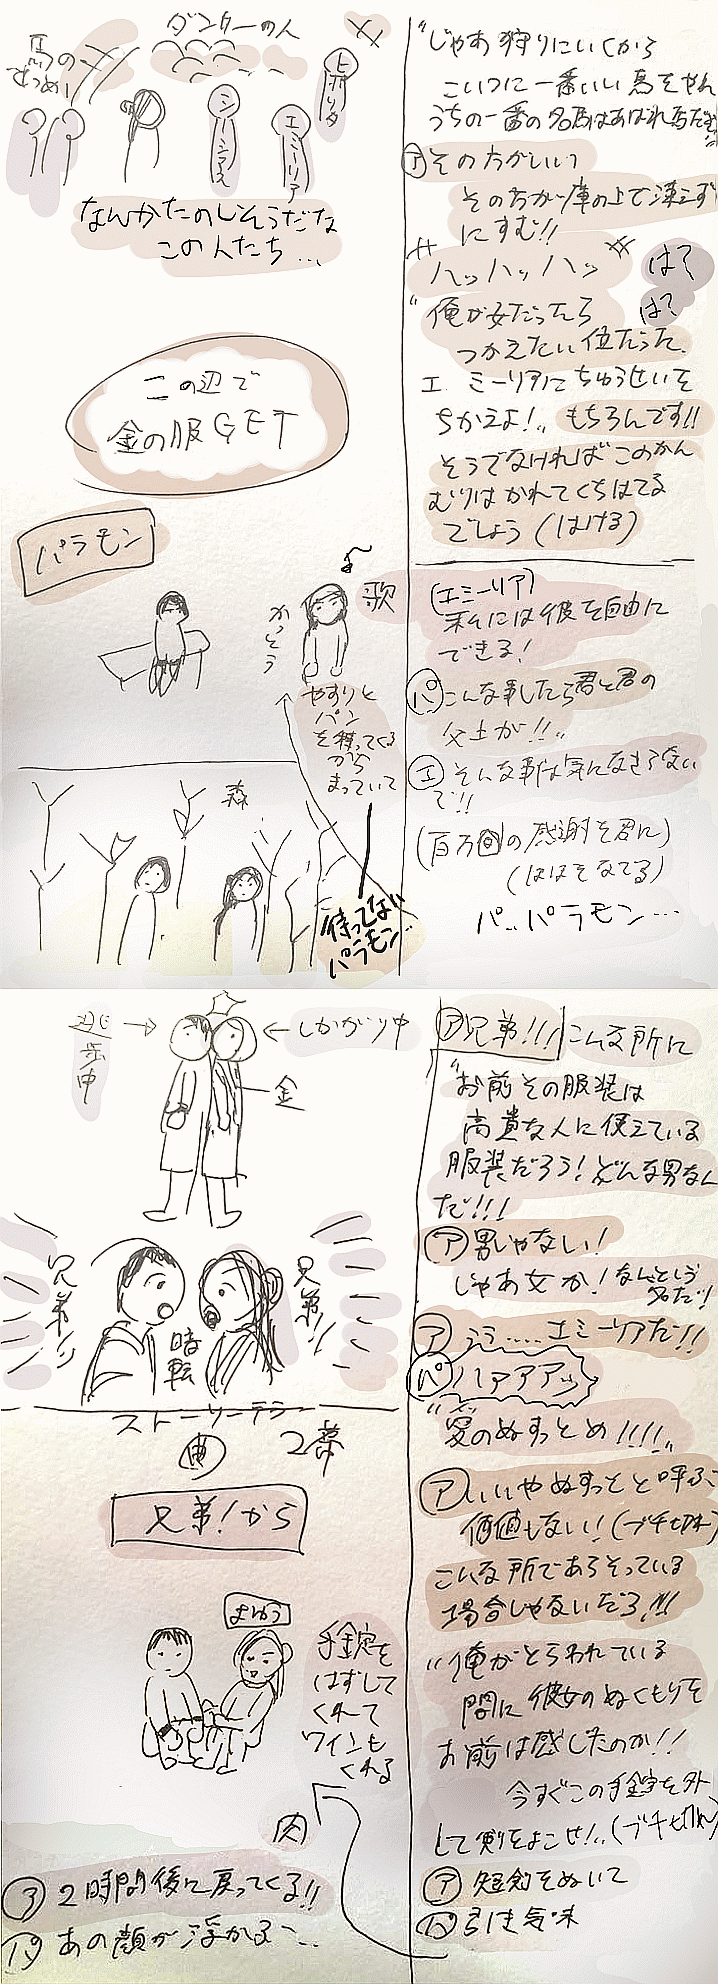 馬の
ダンサーの人
ヒポリタ
シーシアス
エミーリア
なんかたのしそうだな
この人たち…
この辺で
金の服GET
パラモン
歌
かっそう
やすりと
パン
を持ってくる
から
まっていて
森
待ってない
パラモン…
"じゃあ狩りにいくから
こいつに一番いい馬をやれ
うちの一番の名馬はあばれ馬だぞ
ア その方がいい
その方が庫の上で凍えず
にすむ!!
ハッハッハッ
は?
は?
"俺が女だったら
つかえたい位だった。
エミーリアにちゅうせいを
ちかえよ!" もちろんです!!
そうでなければこのかん
むりはかれてくちはてる
でしょう(はける)
(エミーリア)
私には彼を自由に
できる!
パ こんな事したら君と君の
父上が!!"
エ そんな事は気になさらない
で!!
(百万回の感謝を君に)
(ははそなてる)
パ…パラモン…
逃亡
歩中
しかがり中
金
兄弟!!
兄弟!!
暗転
ストーリーテラー
曲 2幕
兄弟!から
まゆう
手錠を
はずして
くれて
ワインも
くれる
肉
ア 2時間後に戻ってくる!!
パ あの顔が浮かるこ…
ア 兄弟!!! こんな所に
"お前その服装は
高貴な人に使えている
服装だろう!どんな男なん
だ!!!
ア 男じゃない!
じゃあ女か!なんという
名だ!
ア うう……エミーリアだ!!
パ ハァアアッ
"愛のぬすっとめ!!!!"
ア いいやぬすっとと呼ぶ
価値もない!(ブチ切れ)
こんな所であらそっている
場合じゃないだろ!!!
"俺がとらわれている
間に彼女のぬくもりを
お前は感じたのか!!
今すぐこの手錠を外
して剣をよこせ!"(ブチ切れ)
ア 短剣をぬいて
パ 引き気味